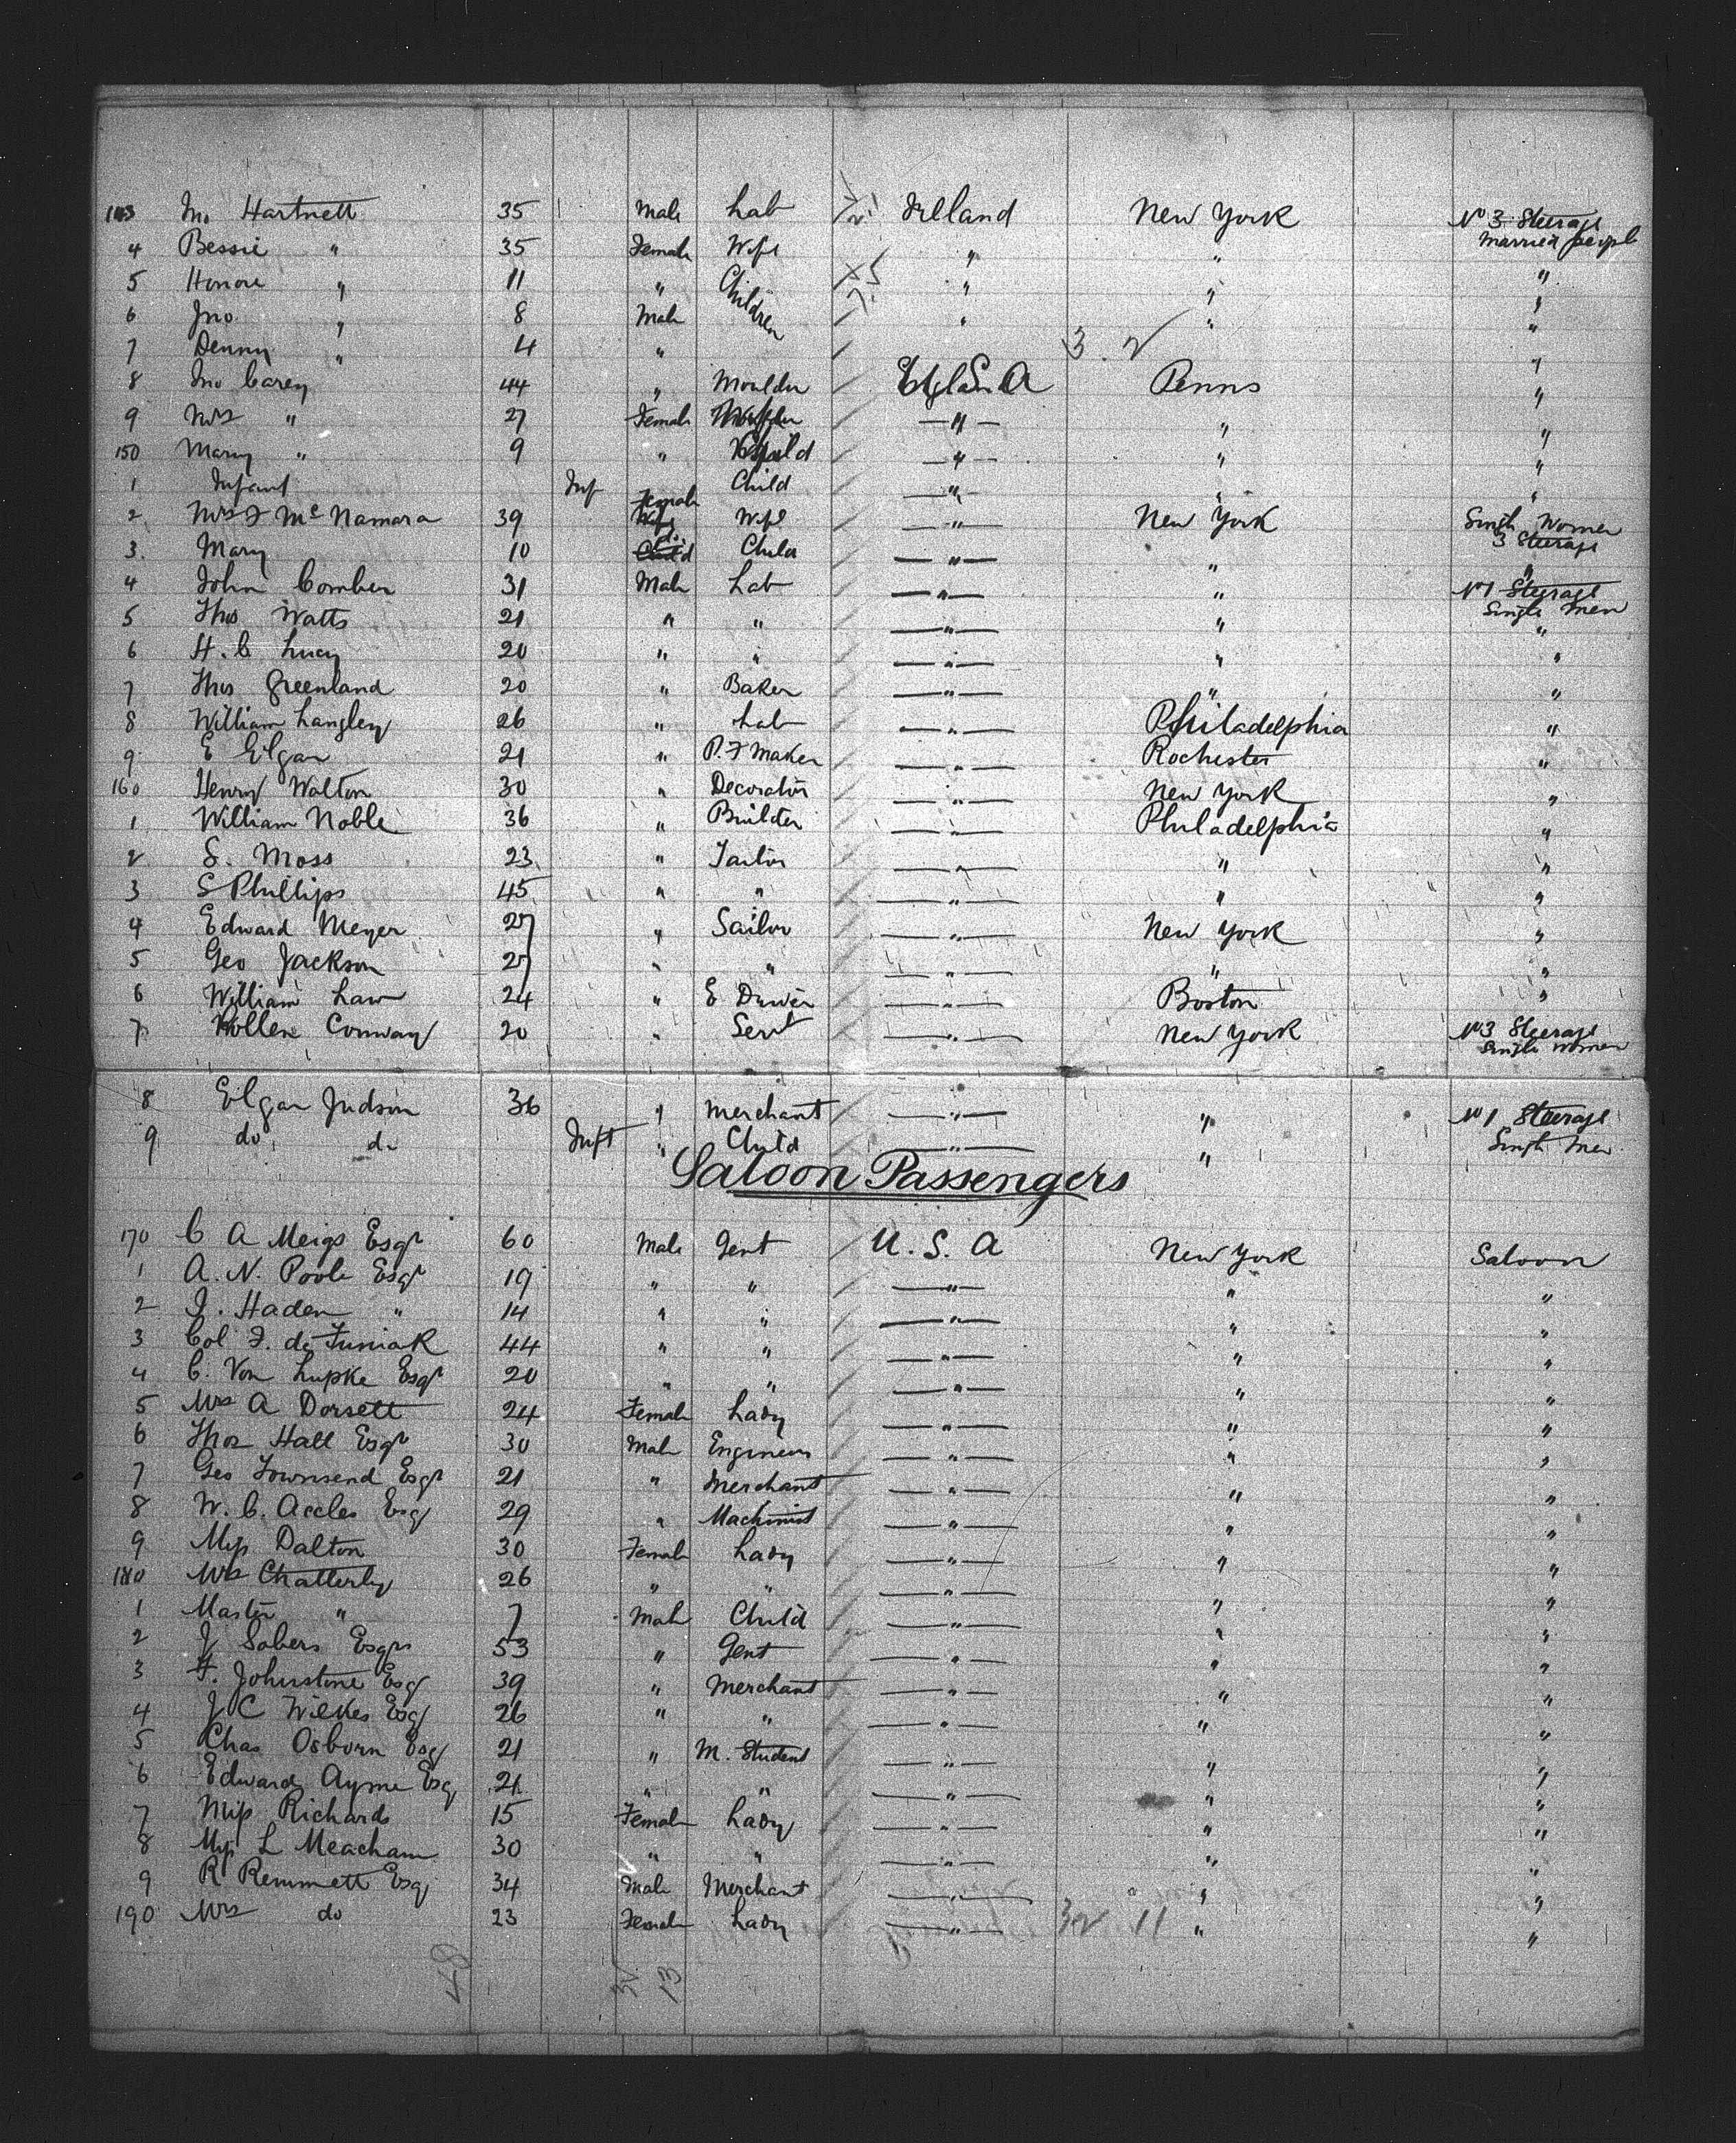 143 Jno Hartnett 35 Male Lab Ireland New York No 3 Steerage Married people
4 Bessie " 35 Female Wife " " "
5 Honore " 11 " Children " " "
6 Jno " 8 Male " " "
7 Denny " 4 " "
3 . 2
8 Jno Carey 44 " Moulder U S A Penns "
9 Mrs " 27 Female — " — " "
150 Mary " 9 " Child — " — " "
1 Infant Inf Child — " — " "
2 Mrs F McNamara 39 Female Wife — " — New York Single Women 3 Steerage
3 Mary 10 Child — " — " "
4 John Comber 31 Male Lab — " — " No 1 Steerage Single Men
5 Thos Watts 21 " " — " — " "
6 H. C Lucy 20 " " — " — " "
7 Thos Greenland 20 " Baker — " — " "
8 William Langley 26 " Lab — " — Philadelphia "
9 E Elgar 21 " P. F Maker — " — Rochester "
160 Henry Walton 30 " Decorator — " — New York "
1 William Noble 36 " Builder — " — Philadelphia "
2 S. Moss 23 " Tailor — " — " "
3 S Phillips 45 " " — " — " "
4 Edward Meyer 27 " Sailor — " — New York "
5 Geo Jackson 27 " " — " — " "
6 William Law 24 " E Driver — " — Boston "
7 Conway 20 " Servt — " — New York No 3 Steerage Single Women
8 Elgar Judson 36 " Merchant — " — " No 1 Steerage
9 do do Inft " Child — " — " Single Men
Saloon Passengers
170 C A Meigs Esqr 60 Male Gent U. S. A New York Saloon
1 A. N. Poole Esqr 19 " " — " — " "
2 J. Haden " 14 " " — " — " "
3 Col F. de Funiak 44 " " — " — " "
4 C. Von Lupke Esqr 20 " " — " — " "
5 Mrs A Dorsett 24 Female Lady — " — " "
6 Thos Hall Esqr 30 Male Engineer — " — " "
7 Geo Townsend Esqr 21 " Merchant — " — " "
8 W. C. Accles Esq 29 " Machinist — " — " "
9 Miss Dalton 30 Female Lady — " — " "
180 Mrs Chatterly 26 " " — " — " "
1 Master " 7 Male Child — " — " "
2 J Sobers Esqr 53 " Gent — " — " "
3 F. Johnstone Esq 39 " Merchant — " — " "
4 J C Wilkes Esq 26 " " — " — " "
5 Chas Osborn Esq 21 " M. Student — " — " "
6 Edward Ayme Esq 21 " " — " — " "
7 Miss Richards 15 Female Lady — " — " "
8 Miss L Meacham 30 " " — " — " "
9 R Remmett Esq 34 Male Merchant — " — " "
190 Mrs do 23 Female Lady — " — 32 11 " "
13